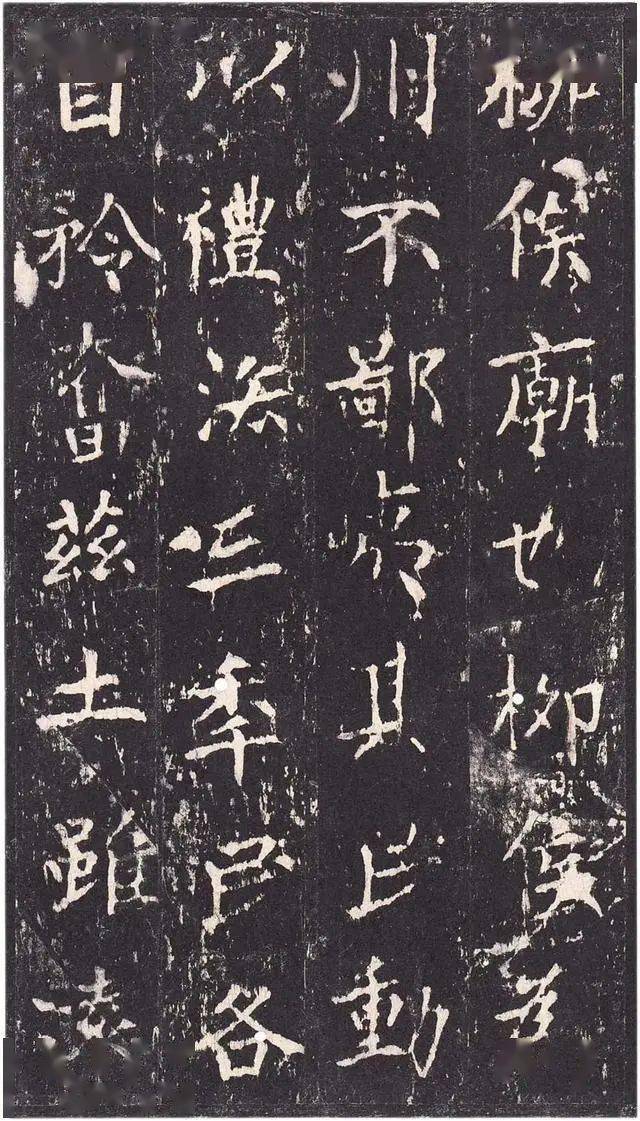 柳侯廟也柳侯為
州不鄙夷其民動
以禮法三年民各
自矜奮茲土雖遠